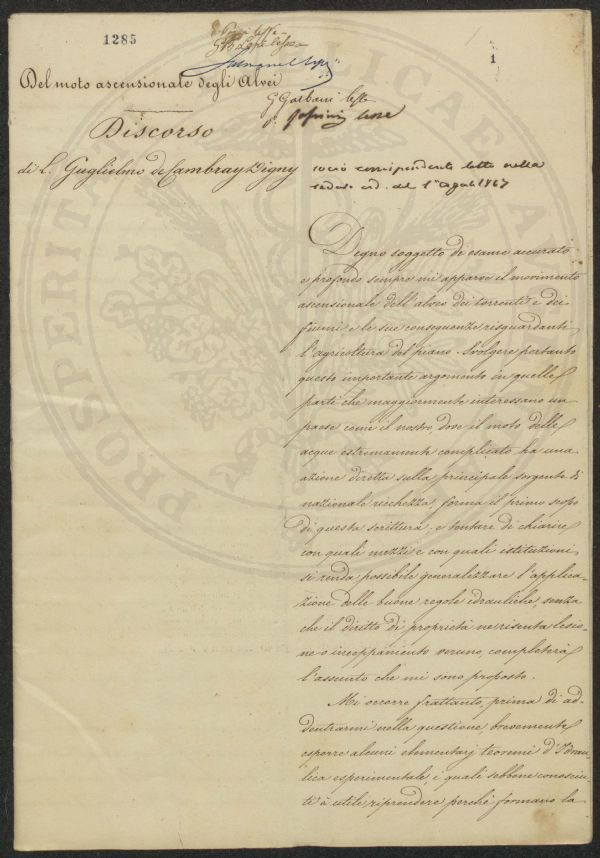 1285
1
Del moto ascensionale degli Alvei
G Garbarii lesse
Discorso
di L. Guglielmo de Cambray Digny
socio corrispondente letto nella
seduta ord. del 1° Agosto 1867
Degno soggetto di esame accurato
e profondo sempre mi apparve il movimento
ascensionale dell'alveo dei torrenti e dei
fiumi e le sue conseguenze risguardanti
l'agricoltura del piano. Svolgere pertanto
questo importante argomento in quelle
parti che maggiormente interessano un
paese come il nostro dove il moto delle
acque estrimamente complicato ha una
azione diretta sulla principale sorgente di
nazionale richezza, forma il primo scopo
di questa scrittura e tentare di chiarire
con quali mezzi e con quali istituzioni,
si renda possibile generalizzare l'applica-
zione delle buone regole idrauliche, senza
che il diritto di proprietà ne risenta lesio-
ne o inceppamento veruno, completerà
l'assunto che mi sono proposto.
Mi occorre frattanto, prima di ad-
dentrarmi nella questione brevemente
esporre alcuni elementarj teoremi d'Idrau-
lica esperimentale, i quali sebbene conosciu-
ti è utile riprendere perchè formano la
PROSPERITA